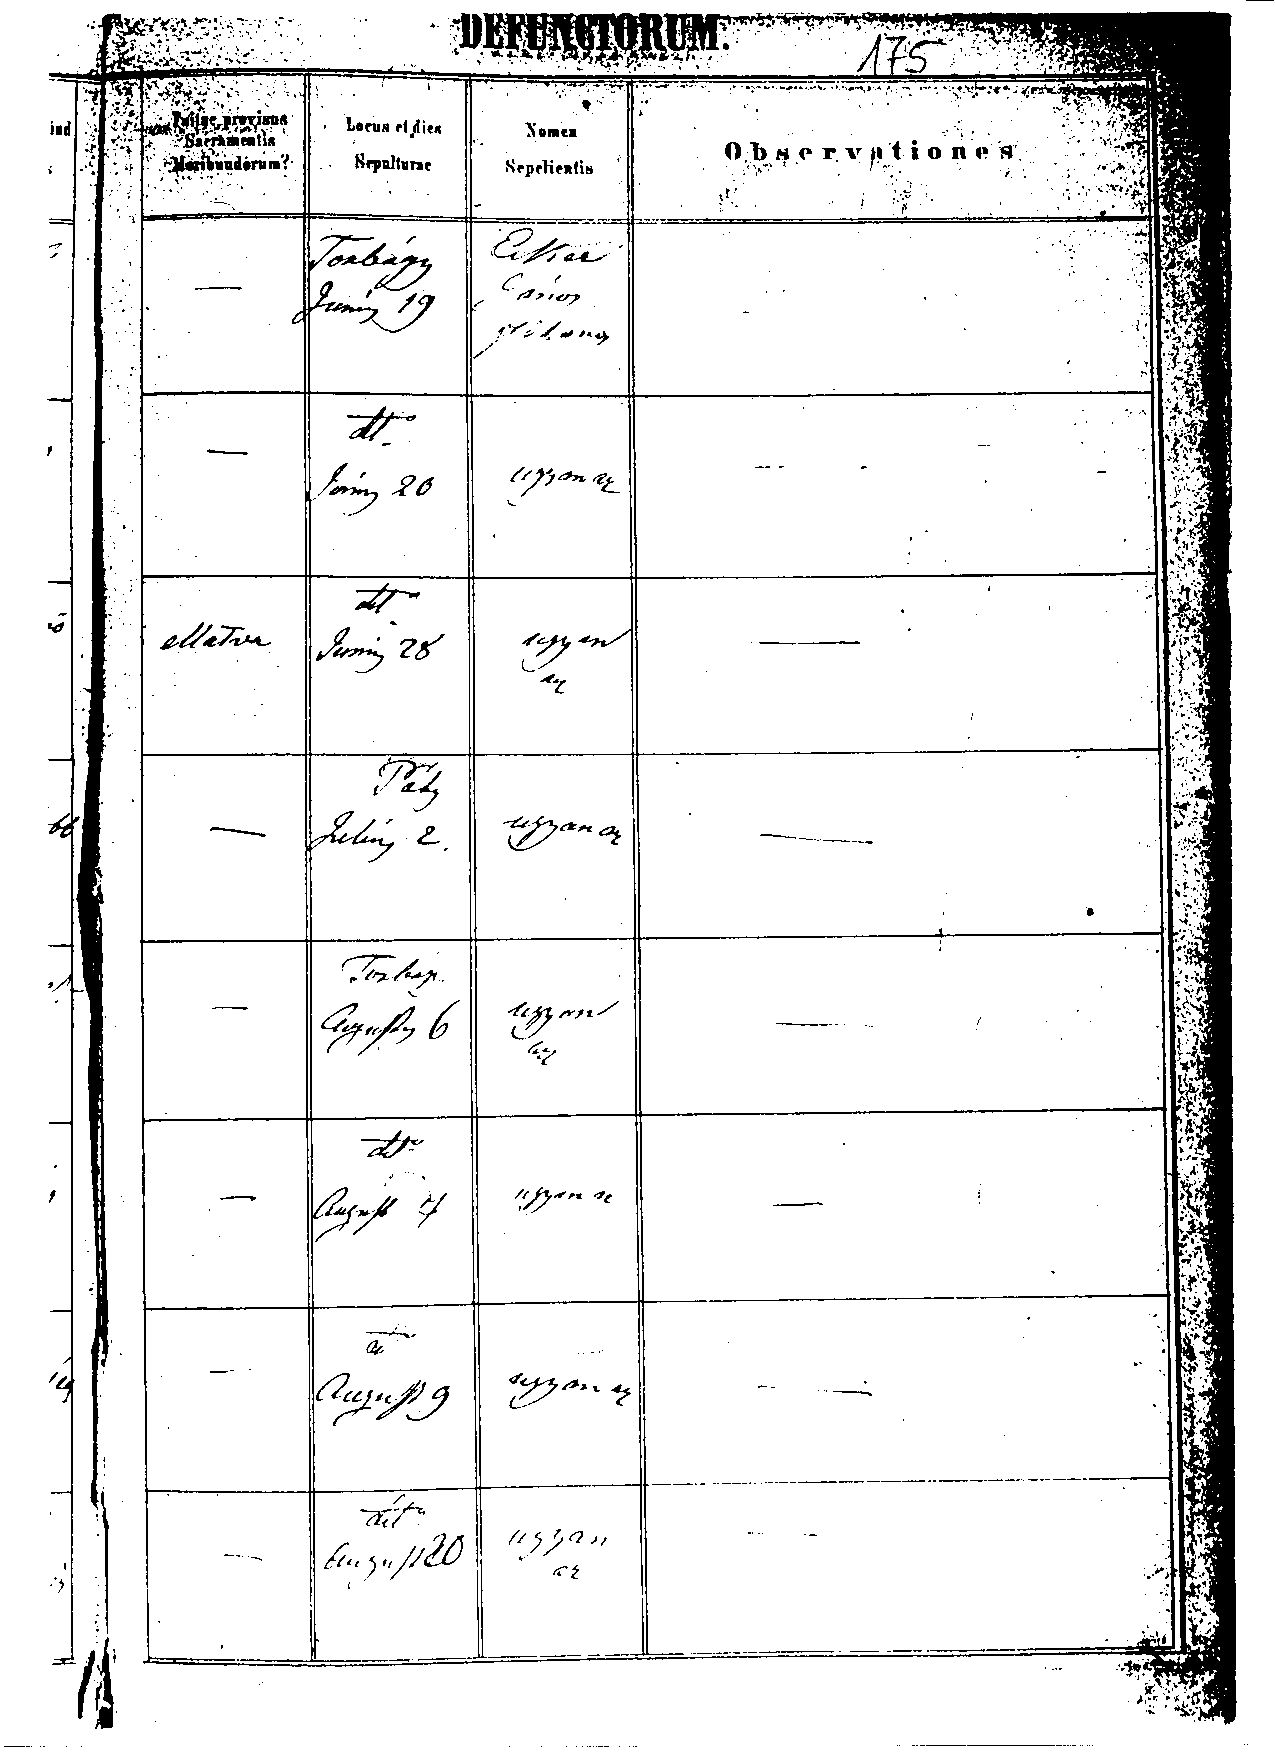 DEFUNCTORUM.
175
Fuitne provisus
Sacramentis
Moribundorum?
Locus et dies
Sepulturae
Nomen
Sepelientis
Observationes
—
Torbágy
Junius 19
János
—
dtto
Junius 20
ugyan az
—
Ellátva
dtto
Junius 28
ugyan
az
—
—
Páty
Julius 2.
ugyan az
—
—
Torbágy
Augustus 6
ugyan
az
—
—
dtto
August 7
ugyan az
—
—
August 9
ugyan az
—
—
dtto
August 20
ugyan
az
—